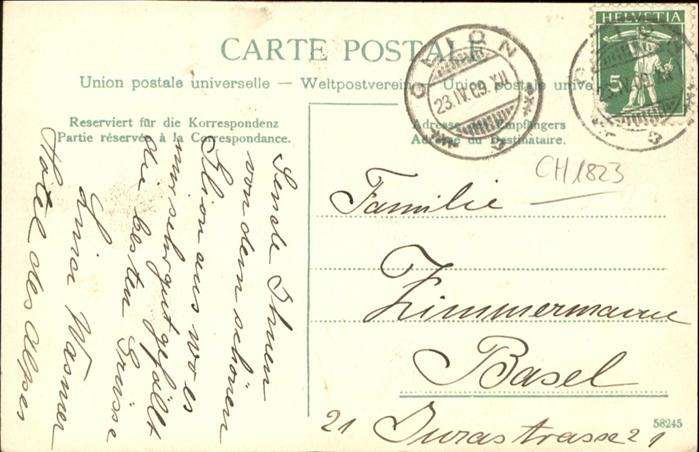 CARTE POSTALE
Union postale universelle — Weltpostverein — Union postale universelle
Reserviert für die Korrespondenz
Partie réservée à la Correspondance.
Adresse des Empfängers
Adresse du Destinataire.
HELVETIA
5
GLION
23.IV.09.XII
CH1823
Sende Ihnen
von dem schönen
Glion aus wo es
mir sehr gut gefällt
die besten Grüsse
Lina Wasmer
Hotel des Alpes
Familie
Zimmermann
Basel
21 Jurastrasse 21
58245